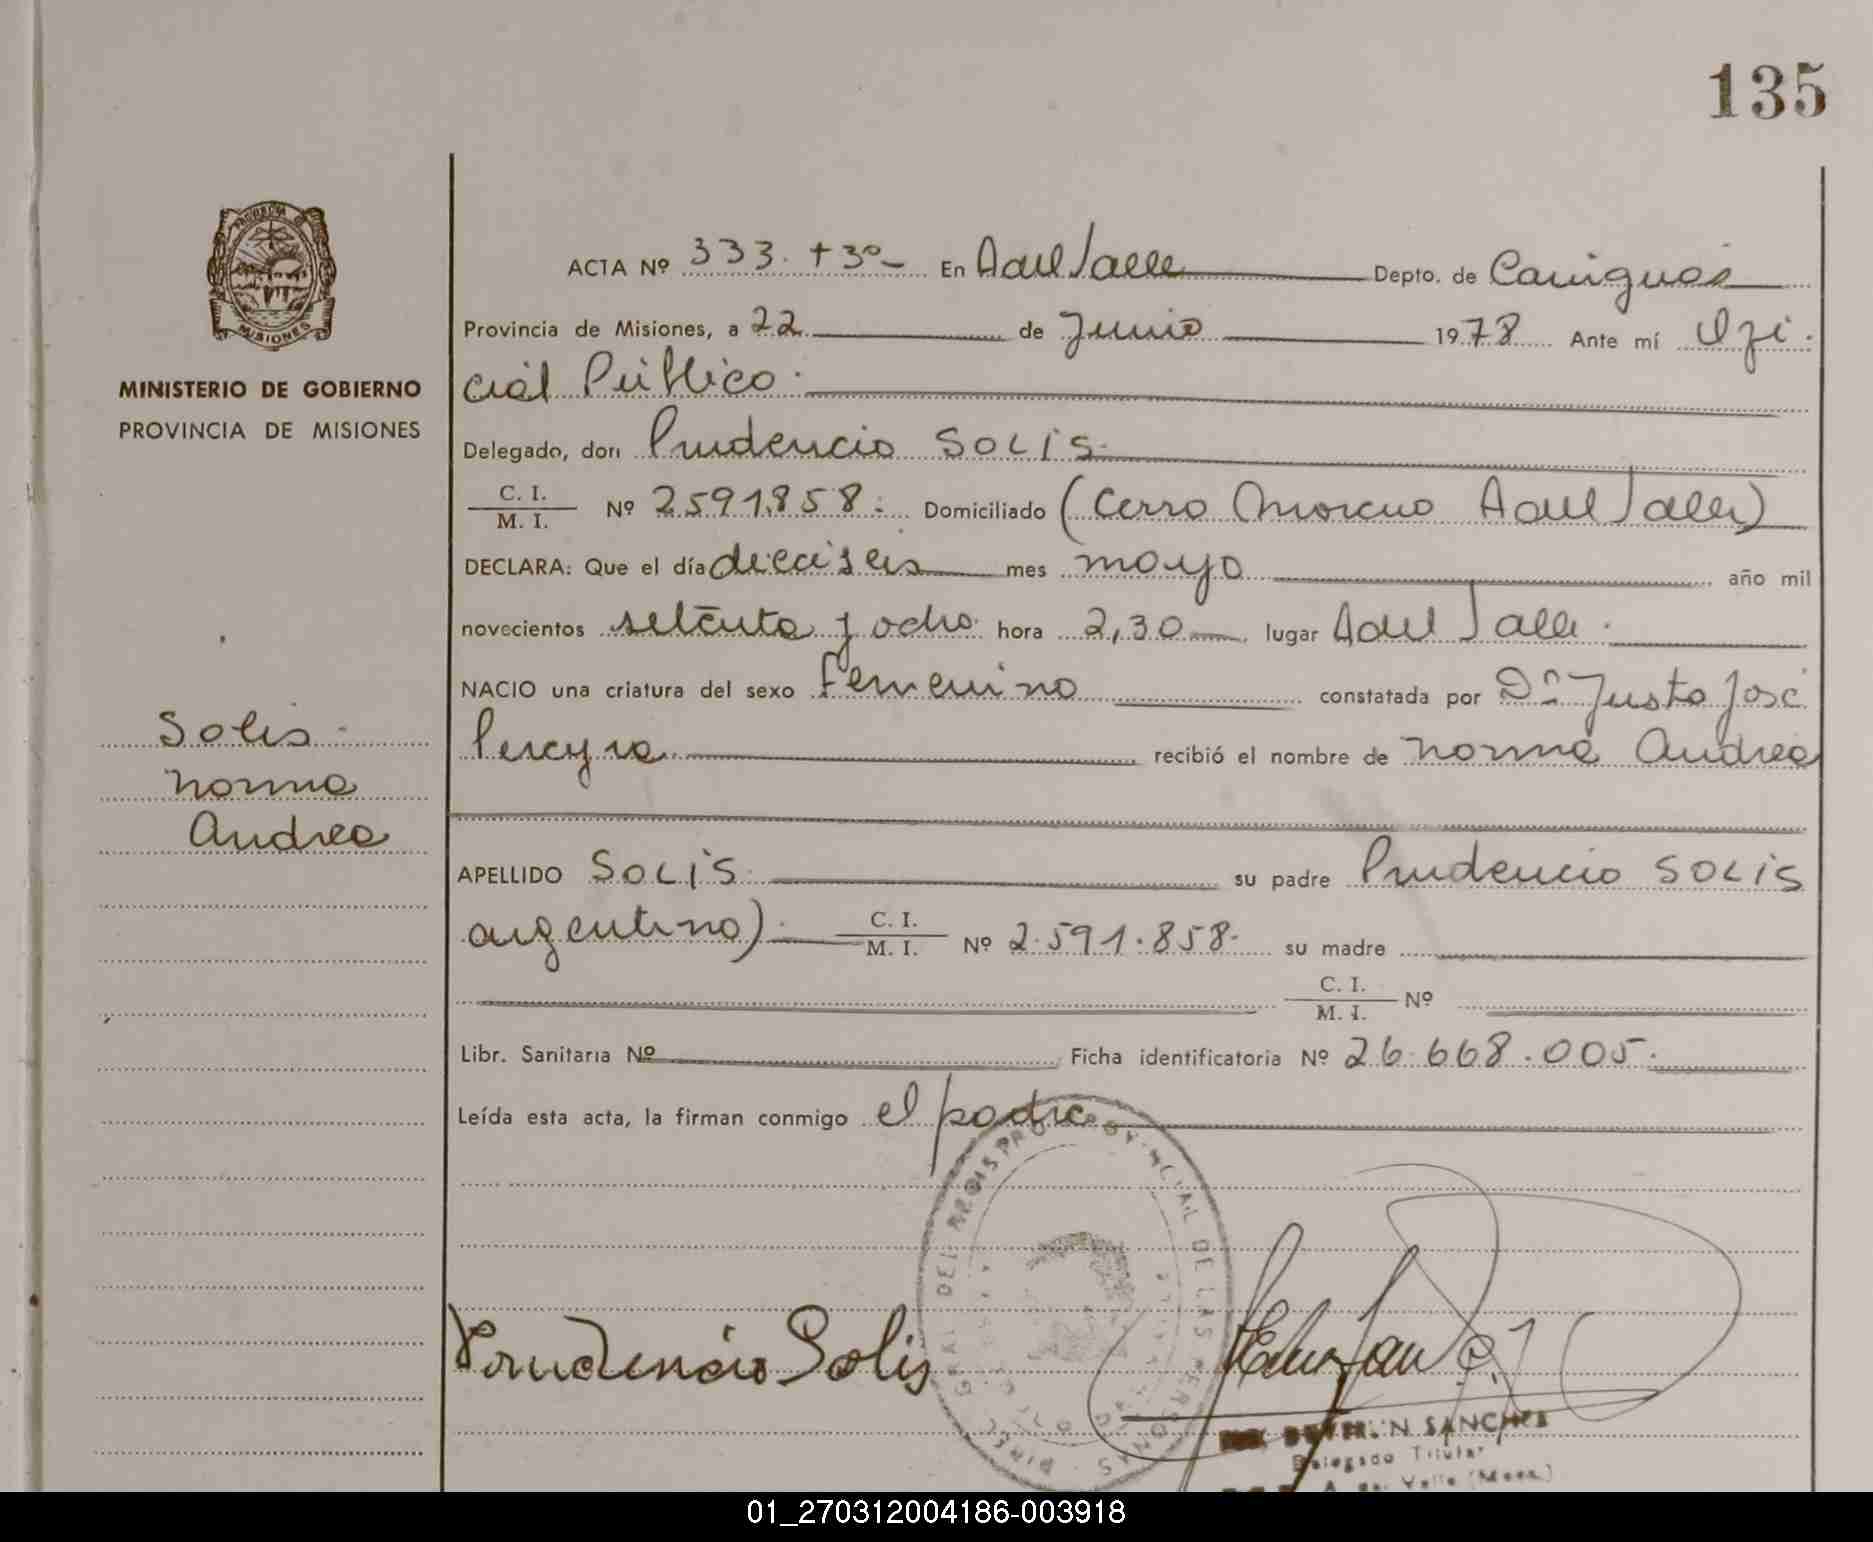 135
PROVINCIA DE
MISIONES
MINISTERIO DE GOBIERNO
PROVINCIA DE MISIONES
Solis
Norma
Andrea
ACTA Nº 333. T 3º - En A del Valle Depto. de Cainguás
Provincia de Misiones, a 22 de Junio 1978 Ante mí Ofi
cial Público.
Delegado, don Prudencio SOLIS
C. I.
M. I. Nº 2591.858. Domiciliado (Cerro Moreno A del Valle)
DECLARA: Que el día dieciseis mes mayo año mil
novecientos setenta y ocho hora 2,30 lugar A del Valle.
NACIO una criatura del sexo femenino constatada por Dn Justo José
Pereyra recibió el nombre de Norma Andrea
APELLIDO SOLIS su padre Prudencio SOLIS
argentino) C. I.
M. I. Nº 2.591.858. su madre
C. I.
M. I. Nº
Libr. Sanitaria Nº Ficha identificatoria Nº 26.668.005.
Leída esta acta, la firman conmigo el padre
DIREC. GRAL. DEL REGIS PROVINCIAL DE LAS PERSONAS
Prudencio Solis
SANCHEZ
Delegado Titular
A. del Valle (Mnes.)
01_270312004186-003918